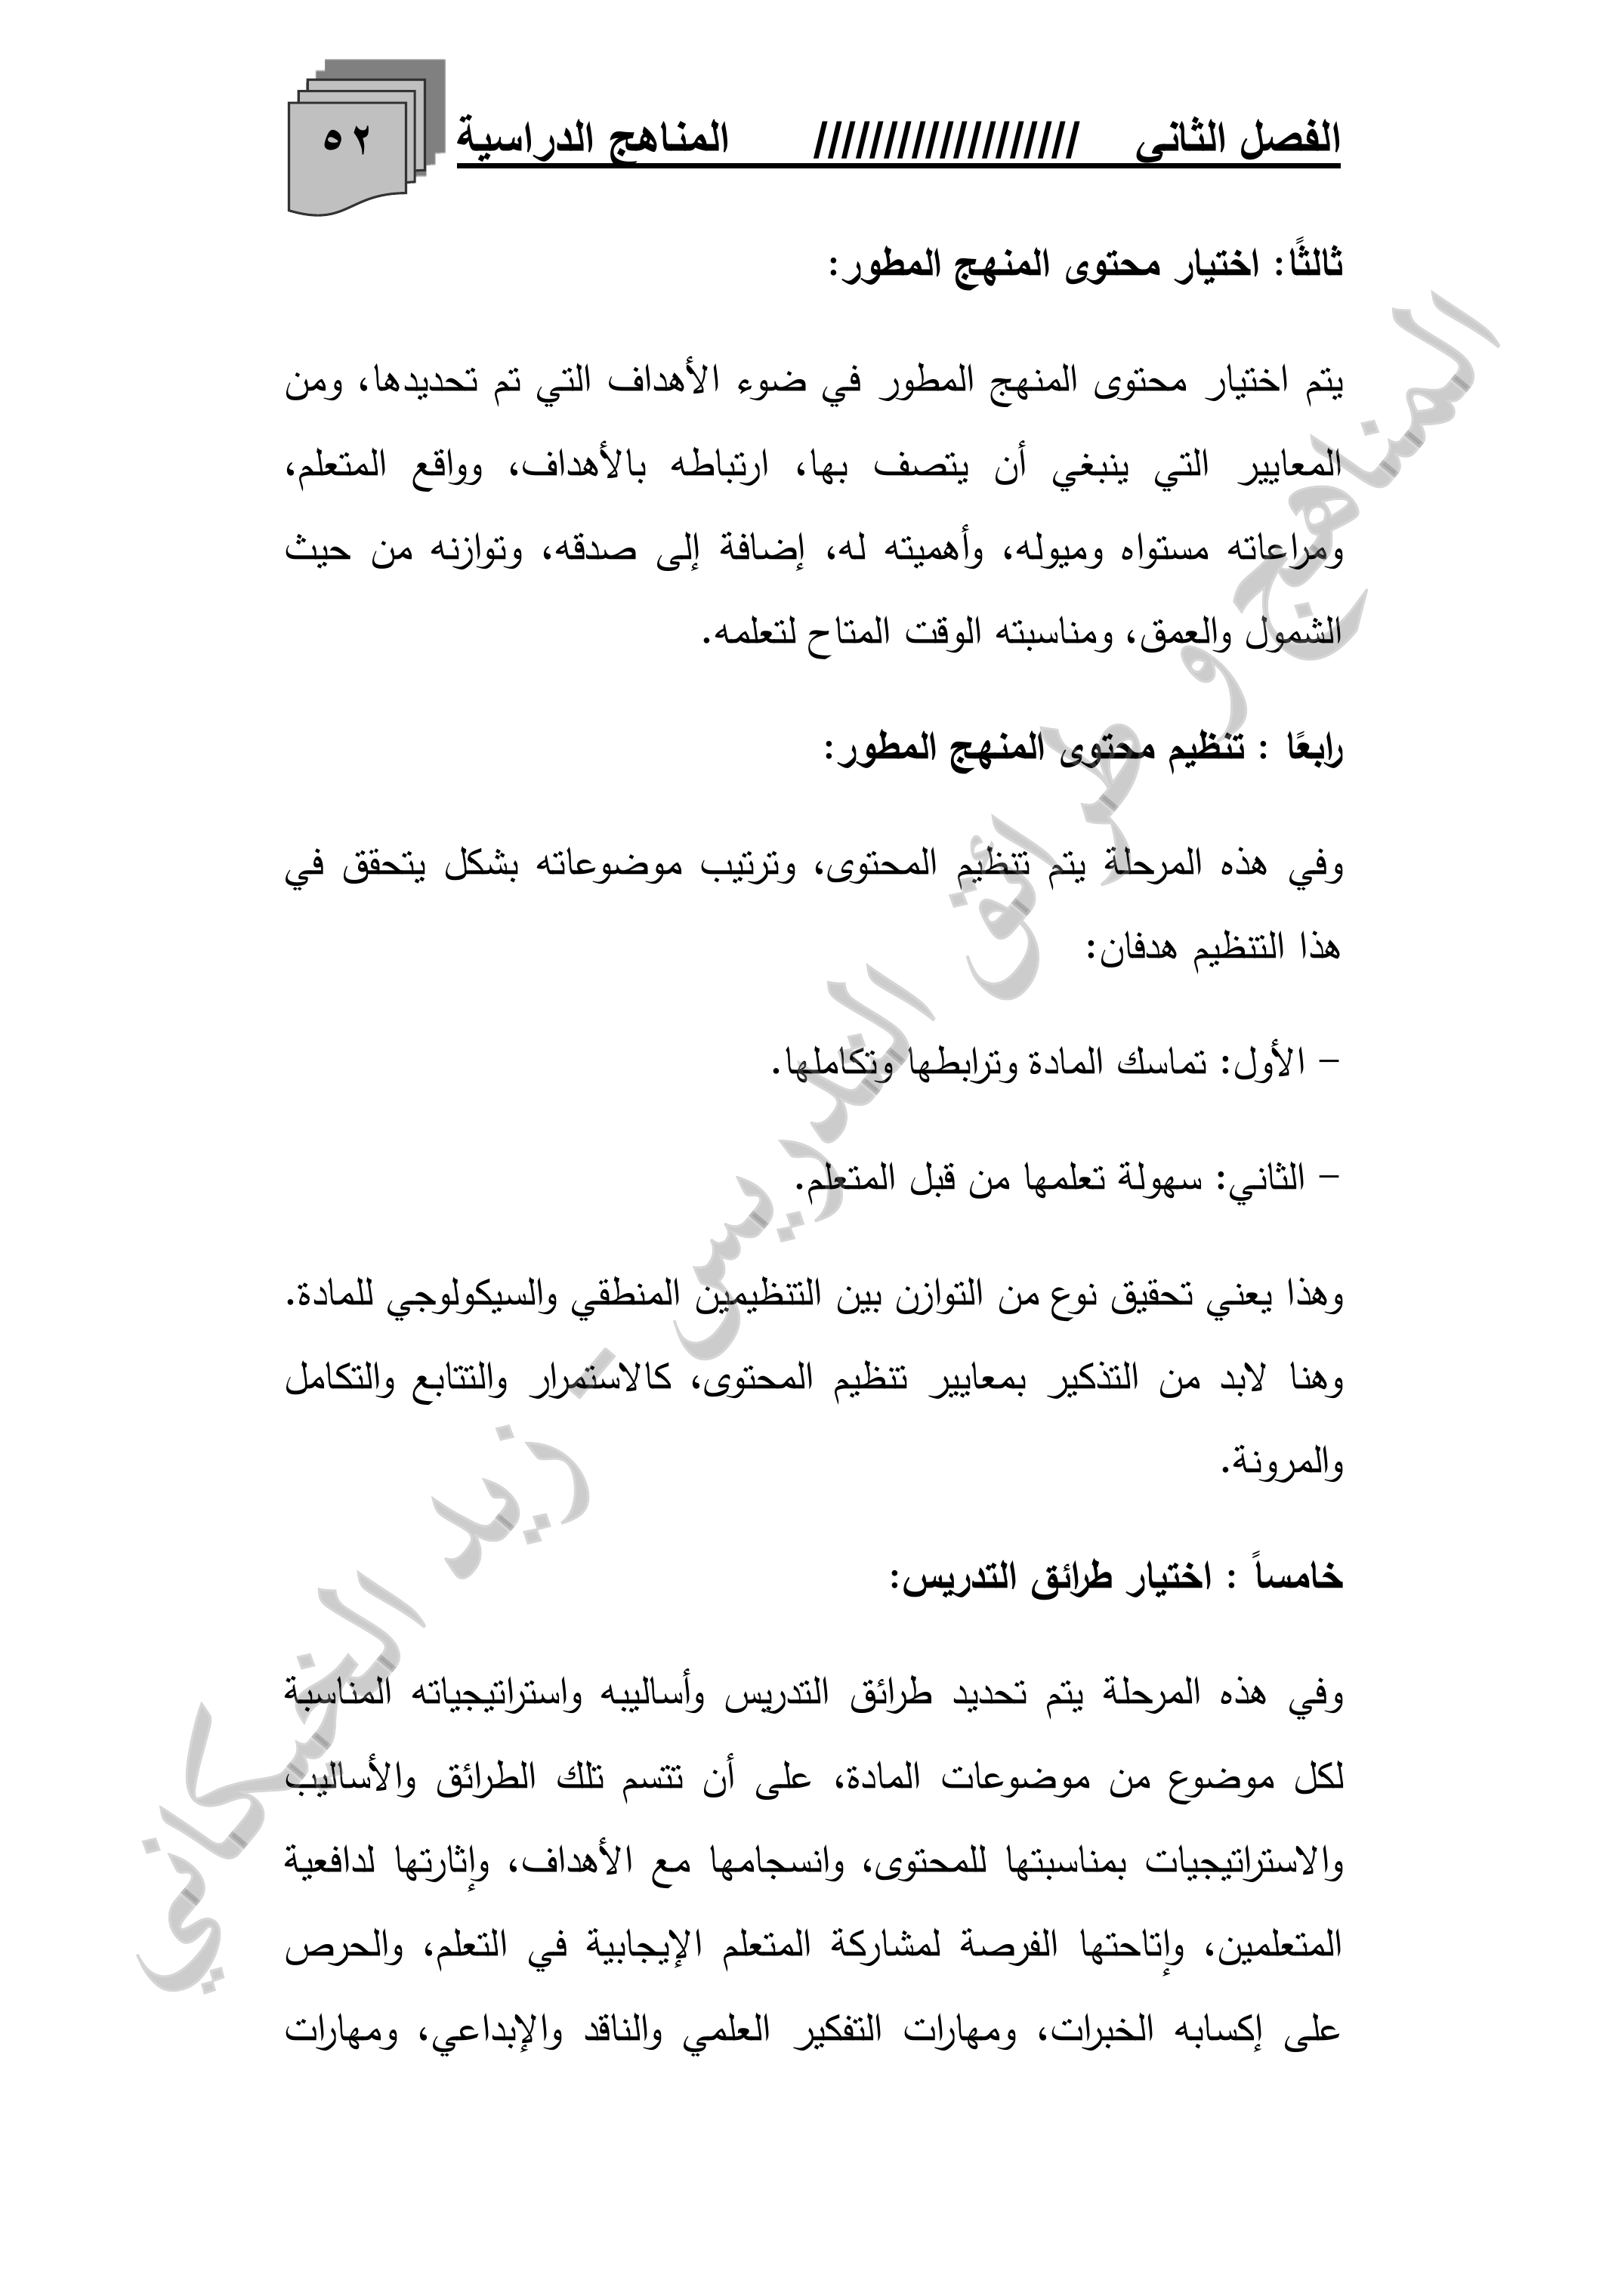 الفصل الثاني /////////////////// المناهج الدراسية
٥٢
ثالثًا: اختيار محتوى المنهج المطور:
يتم اختيار محتوى المنهج المطور في ضوء الأهداف التي تم تحديدها، ومن
المعايير التي ينبغي أن يتصف بها، ارتباطه بالأهداف، وواقع المتعلم،
ومراعاته مستواه وميوله، وأهميته له، إضافة إلى صدقه، وتوازنه من حيث
الشمول والعمق، ومناسبته الوقت المتاح لتعلمه.
رابعًا : تنظيم محتوى المنهج المطور:
وفي هذه المرحلة يتم تنظيم المحتوى، وترتيب موضوعاته بشكل يتحقق في
هذا التنظيم هدفان:
– الأول: تماسك المادة وترابطها وتكاملها.
– الثاني: سهولة تعلمها من قبل المتعلم.
وهذا يعني تحقيق نوع من التوازن بين التنظيمين المنطقي والسيكولوجي للمادة.
وهنا لابد من التذكير بمعايير تنظيم المحتوى، كالاستمرار والتتابع والتكامل
والمرونة.
خامساً : اختيار طرائق التدريس:
وفي هذه المرحلة يتم تحديد طرائق التدريس وأساليبه واستراتيجياته المناسبة
لكل موضوع من موضوعات المادة، على أن تتسم تلك الطرائق والأساليب
والاستراتيجيات بمناسبتها للمحتوى، وانسجامها مع الأهداف، وإثارتها لدافعية
المتعلمين، وإتاحتها الفرصة لمشاركة المتعلم الإيجابية في التعلم، والحرص
على إكسابه الخبرات، ومهارات التفكير العلمي والناقد والإبداعي، ومهارات
المناهج و طرائق التدريس - زيد الخيكاني